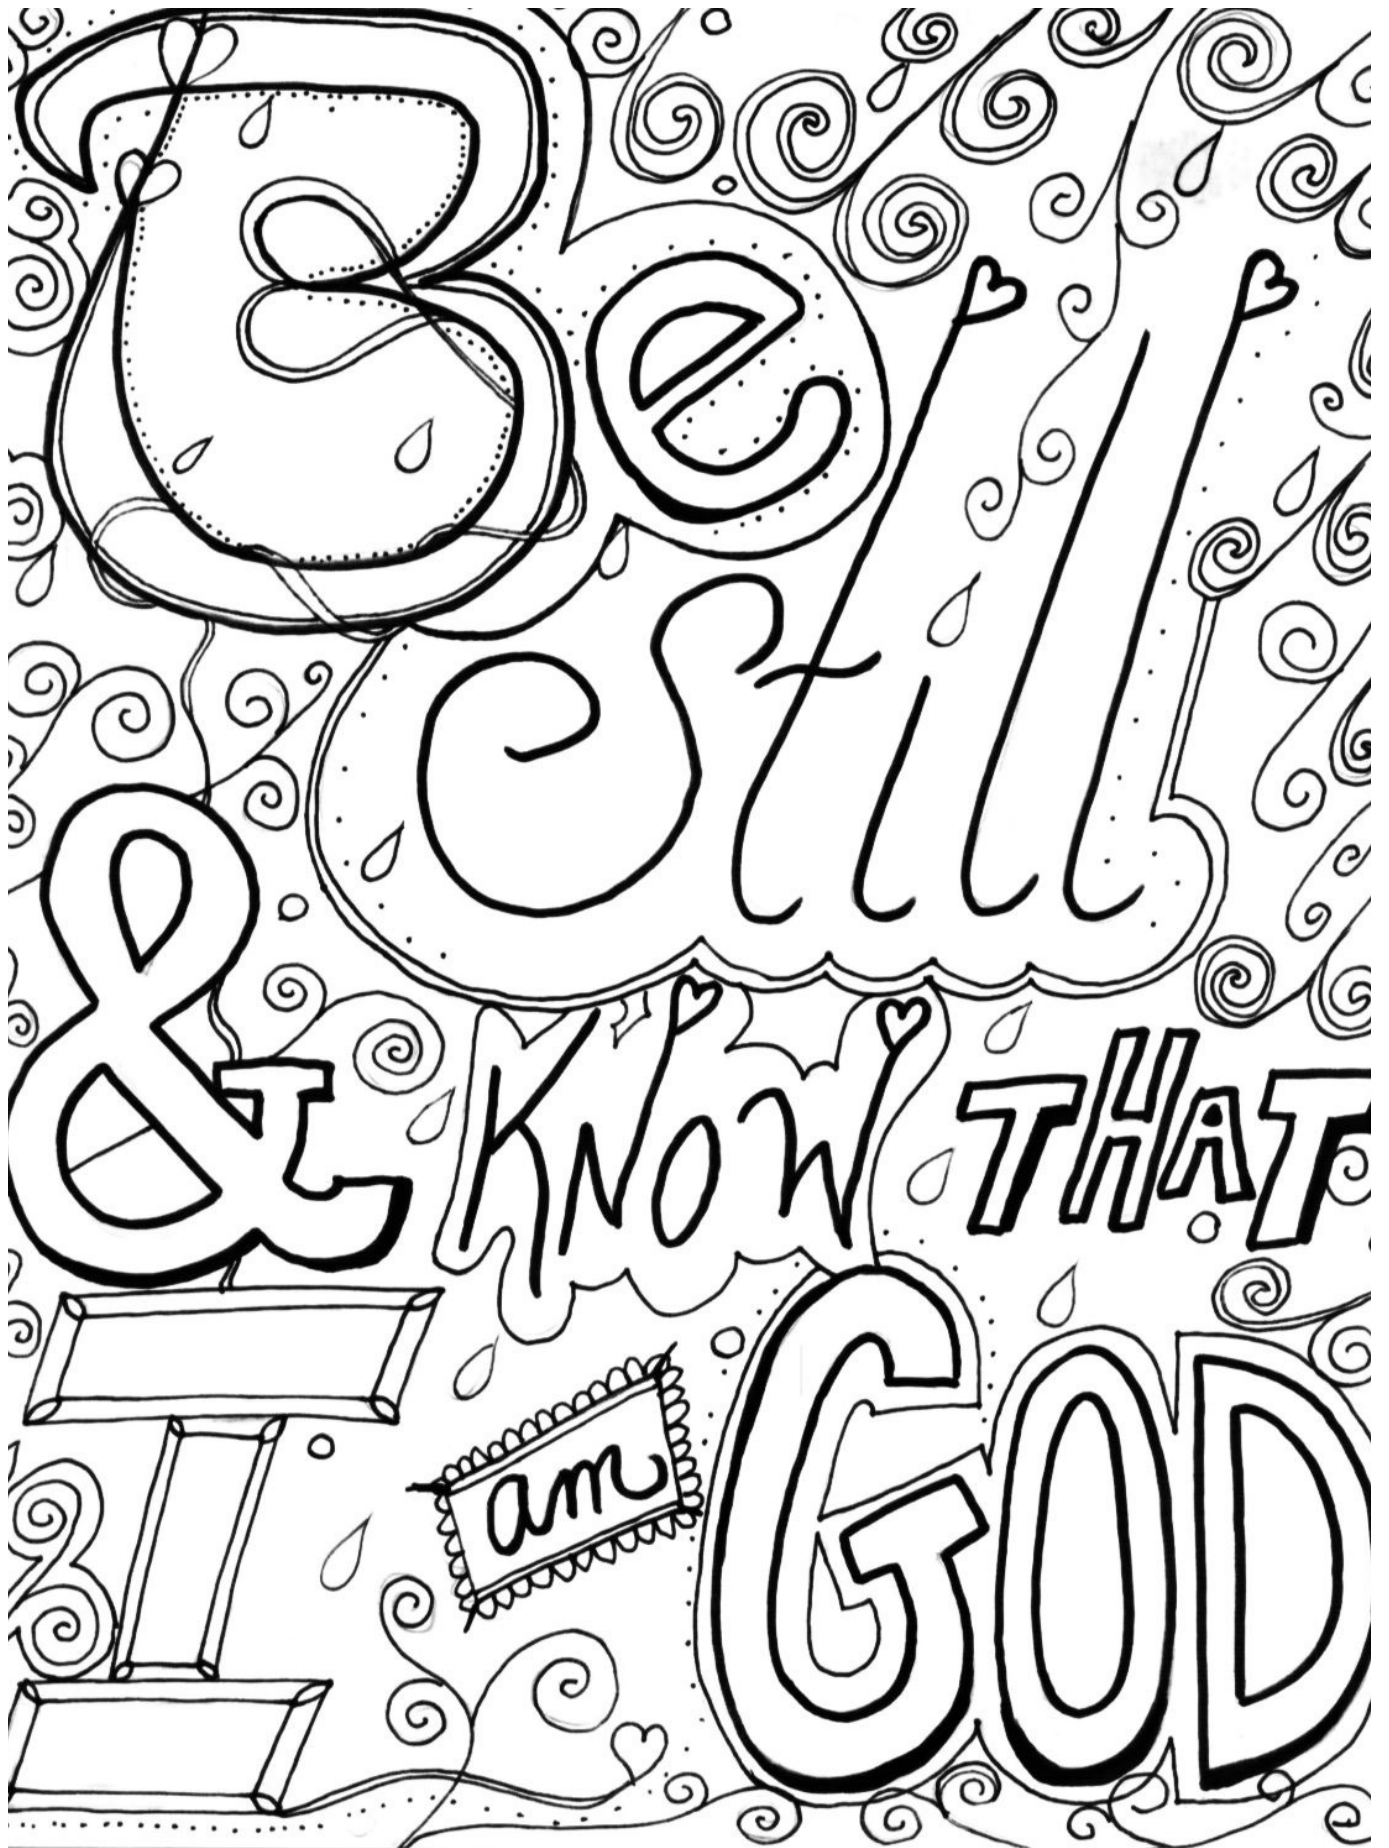 Be
Still
& KNOW THAT
I am GOD